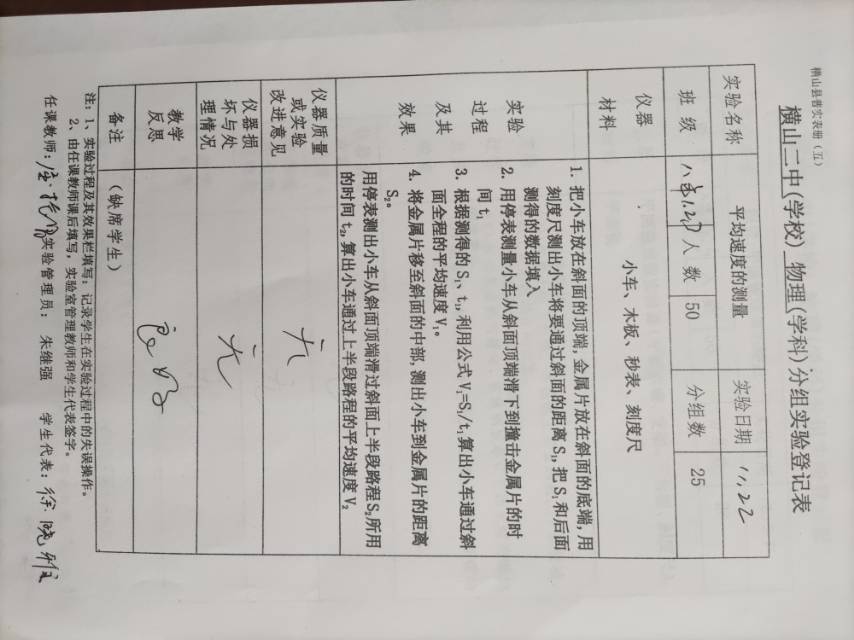 横山县普实表册（五）
横山二中(学校) 物理(学科)分组实验登记表
实验名称 平均速度的测量 实验日期 11,22
班级 人数 50 分组数 25
仪器材料 小车、木板、秒表、刻度尺
实验过程及其效果
1. 把小车放在斜面的顶端,金属片放在斜面的底端,用
刻度尺测出小车将要通过斜面的距离 S₁,把 S₁ 和后面
测得的数据填入
2. 用停表测量小车从斜面顶端滑下到撞击金属片的时
间 t₁
3. 根据测得的 S₁、t₁,利用公式 V₁=S₁/t₁ 算出小车通过斜
面全程的平均速度 V₁。
4. 将金属片移至斜面的中部,测出小车到金属片的距离
S₂。
用停表测出小车从斜面顶端滑过斜面上半段路程 S₂ 所用
的时间 t₂,算出小车通过上半段路程的平均速度 V₂
仪器质量或实验改进意见 无
仪器损坏与处理情况 无
教学反思
备注 （缺席学生）
注：1、实验过程及其效果栏填写：记录学生在实验过程中的失误操作。
2、由任课教师课后填写，实验室管理教师和学生代表签字。
任课教师： 实验管理员： 朱继强 学生代表：徐晓雅